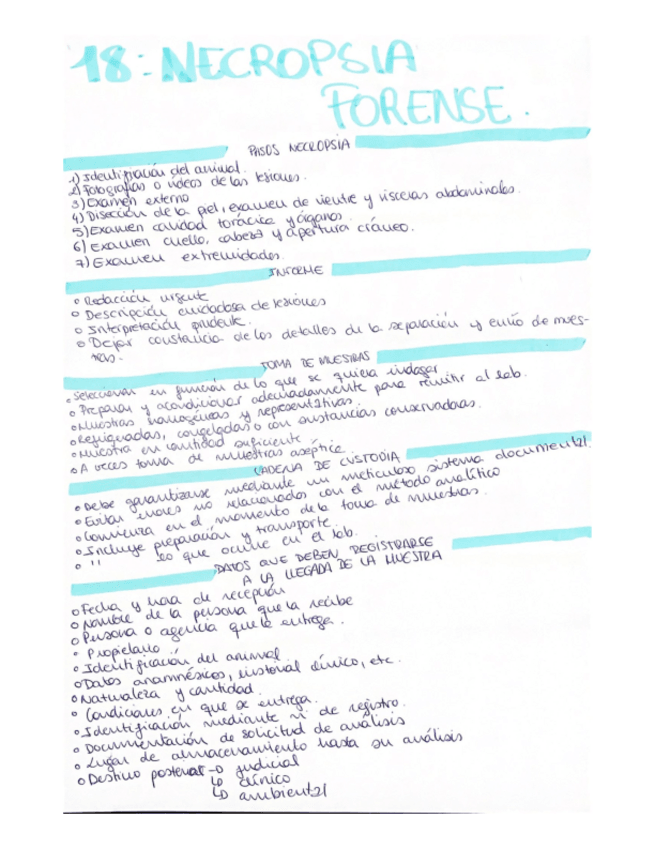 18: NECROPSIA
FORENSE.
PASOS NECROPSIA
1) Identificación del animal.
2) Fotografías o vídeos de las lesiones.
3) Examen externo
4) Disección de la piel, examen de vientre y vísceras abdominales.
5) Examen cavidad torácica y órganos.
6) Examen cuello, cabeza y apertura cráneo.
7) Examen extremidades.
INFORME
o Redacción urgente
o Descripción cuidadosa de lesiones
o Interpretación prudente.
o Dejar constancia de los detalles de la separación y envío de mues-
tras.
TOMA DE MUESTRAS
o Seleccionar en función de lo que se quiera indagar
o Preparar y acondicionar adecuadamente para remitir al lab.
o Muestras homogéneas y representativas.
o Refrigeradas, congeladas o con sustancias conservadoras.
o Muestra en cantidad suficiente
o A veces toma de muestras aséptica.
CADENA DE CUSTODIA
o Debe garantizarse mediante un meticuloso sistema documental.
o Evitar errores no relacionados con el método analítico
o Comienza en el momento de la toma de muestras.
o Incluye preparación y transporte.
o " lo que ocurre en el lab.
DATOS QUE DEBEN REGISTRARSE
A LA LLEGADA DE LA MUESTRA
o Fecha y hora de recepción
o Nombre de la persona que la recibe
o Persona o agencia que la entrega.
o Propietario "
o Identificación del animal
o Datos anamnésicos, historial clínico, etc.
o Naturaleza y cantidad.
o Condiciones en que se entrega.
o Identificación mediante nº de registro.
o Documentación de solicitud de análisis
o Lugar de almacenamiento hasta su análisis
o Destino posterior → judicial
↳ clínico
↳ ambiental